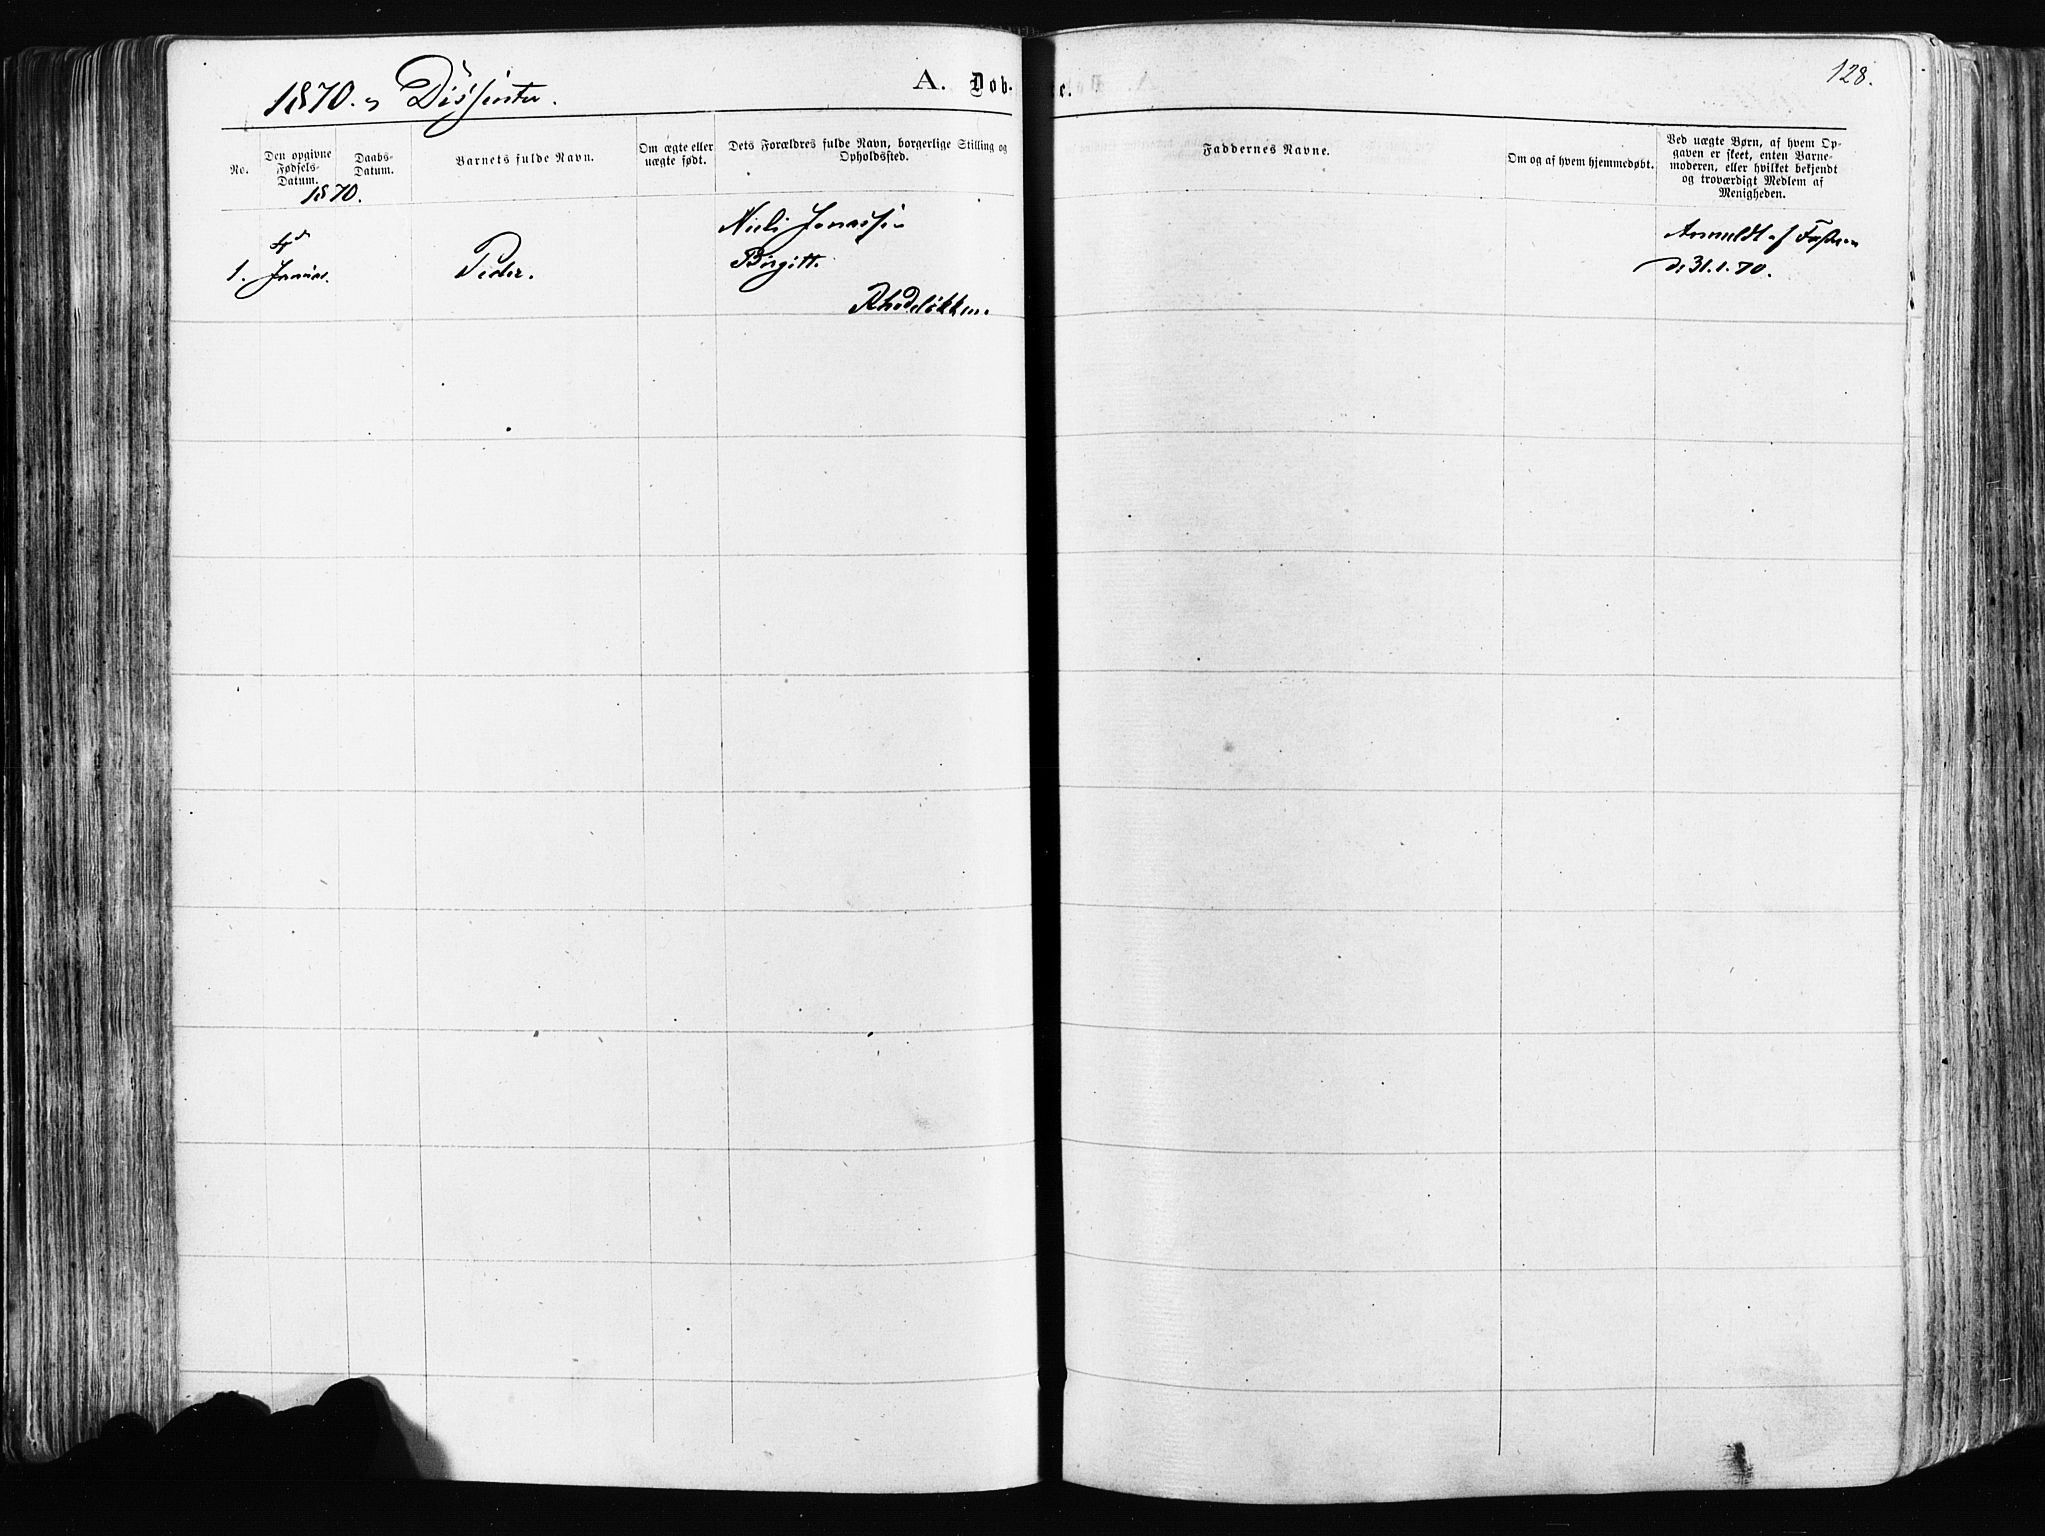 1870. Dissenter.
A. Døb-
e.
128.
No.
Den opgivne
Fødsels-
Datum.
Daabs-
Datum.
Barnets fulde Navn.
Om ægte eller
uægte født.
Dets Forældres fulde Navn, borgerlige Stilling og
Opholdssted.
Faddernes Navne.
Om og af hvem hjemmedøbt.
Ved uægte Børn, af hvem Op-
gaven er skeet, enten Barne-
moderen, eller hvilket bekjendt
og troværdigt Medlem af
Menigheden.
1870.
1.
4de
Januar.
Peder.
Niels Jonassen
Birgitte
Rhodeløkken.
Anmeldt af Faderen
31.1.70.